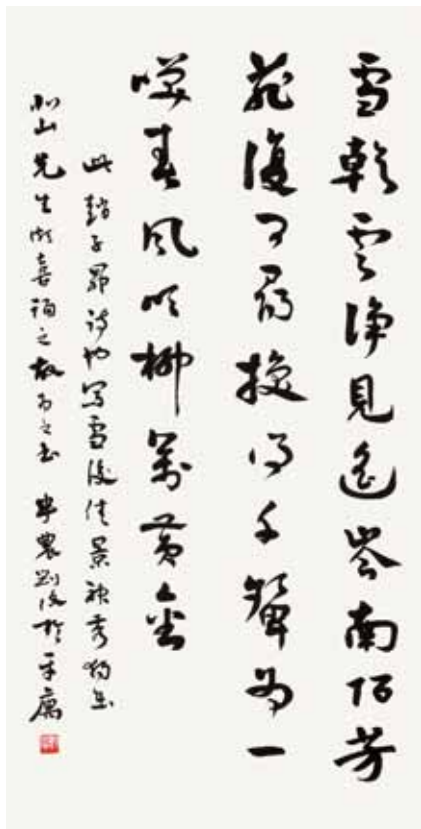 雪乾雲淨見遙岑南陌芳
菲復可尋換得千顰為一
咲春風吹柳萬黃金
此趙子昂詩也寫雪後佳景神秀獨出
北山先生頗喜誦之故為之書 半農劉復於平寓